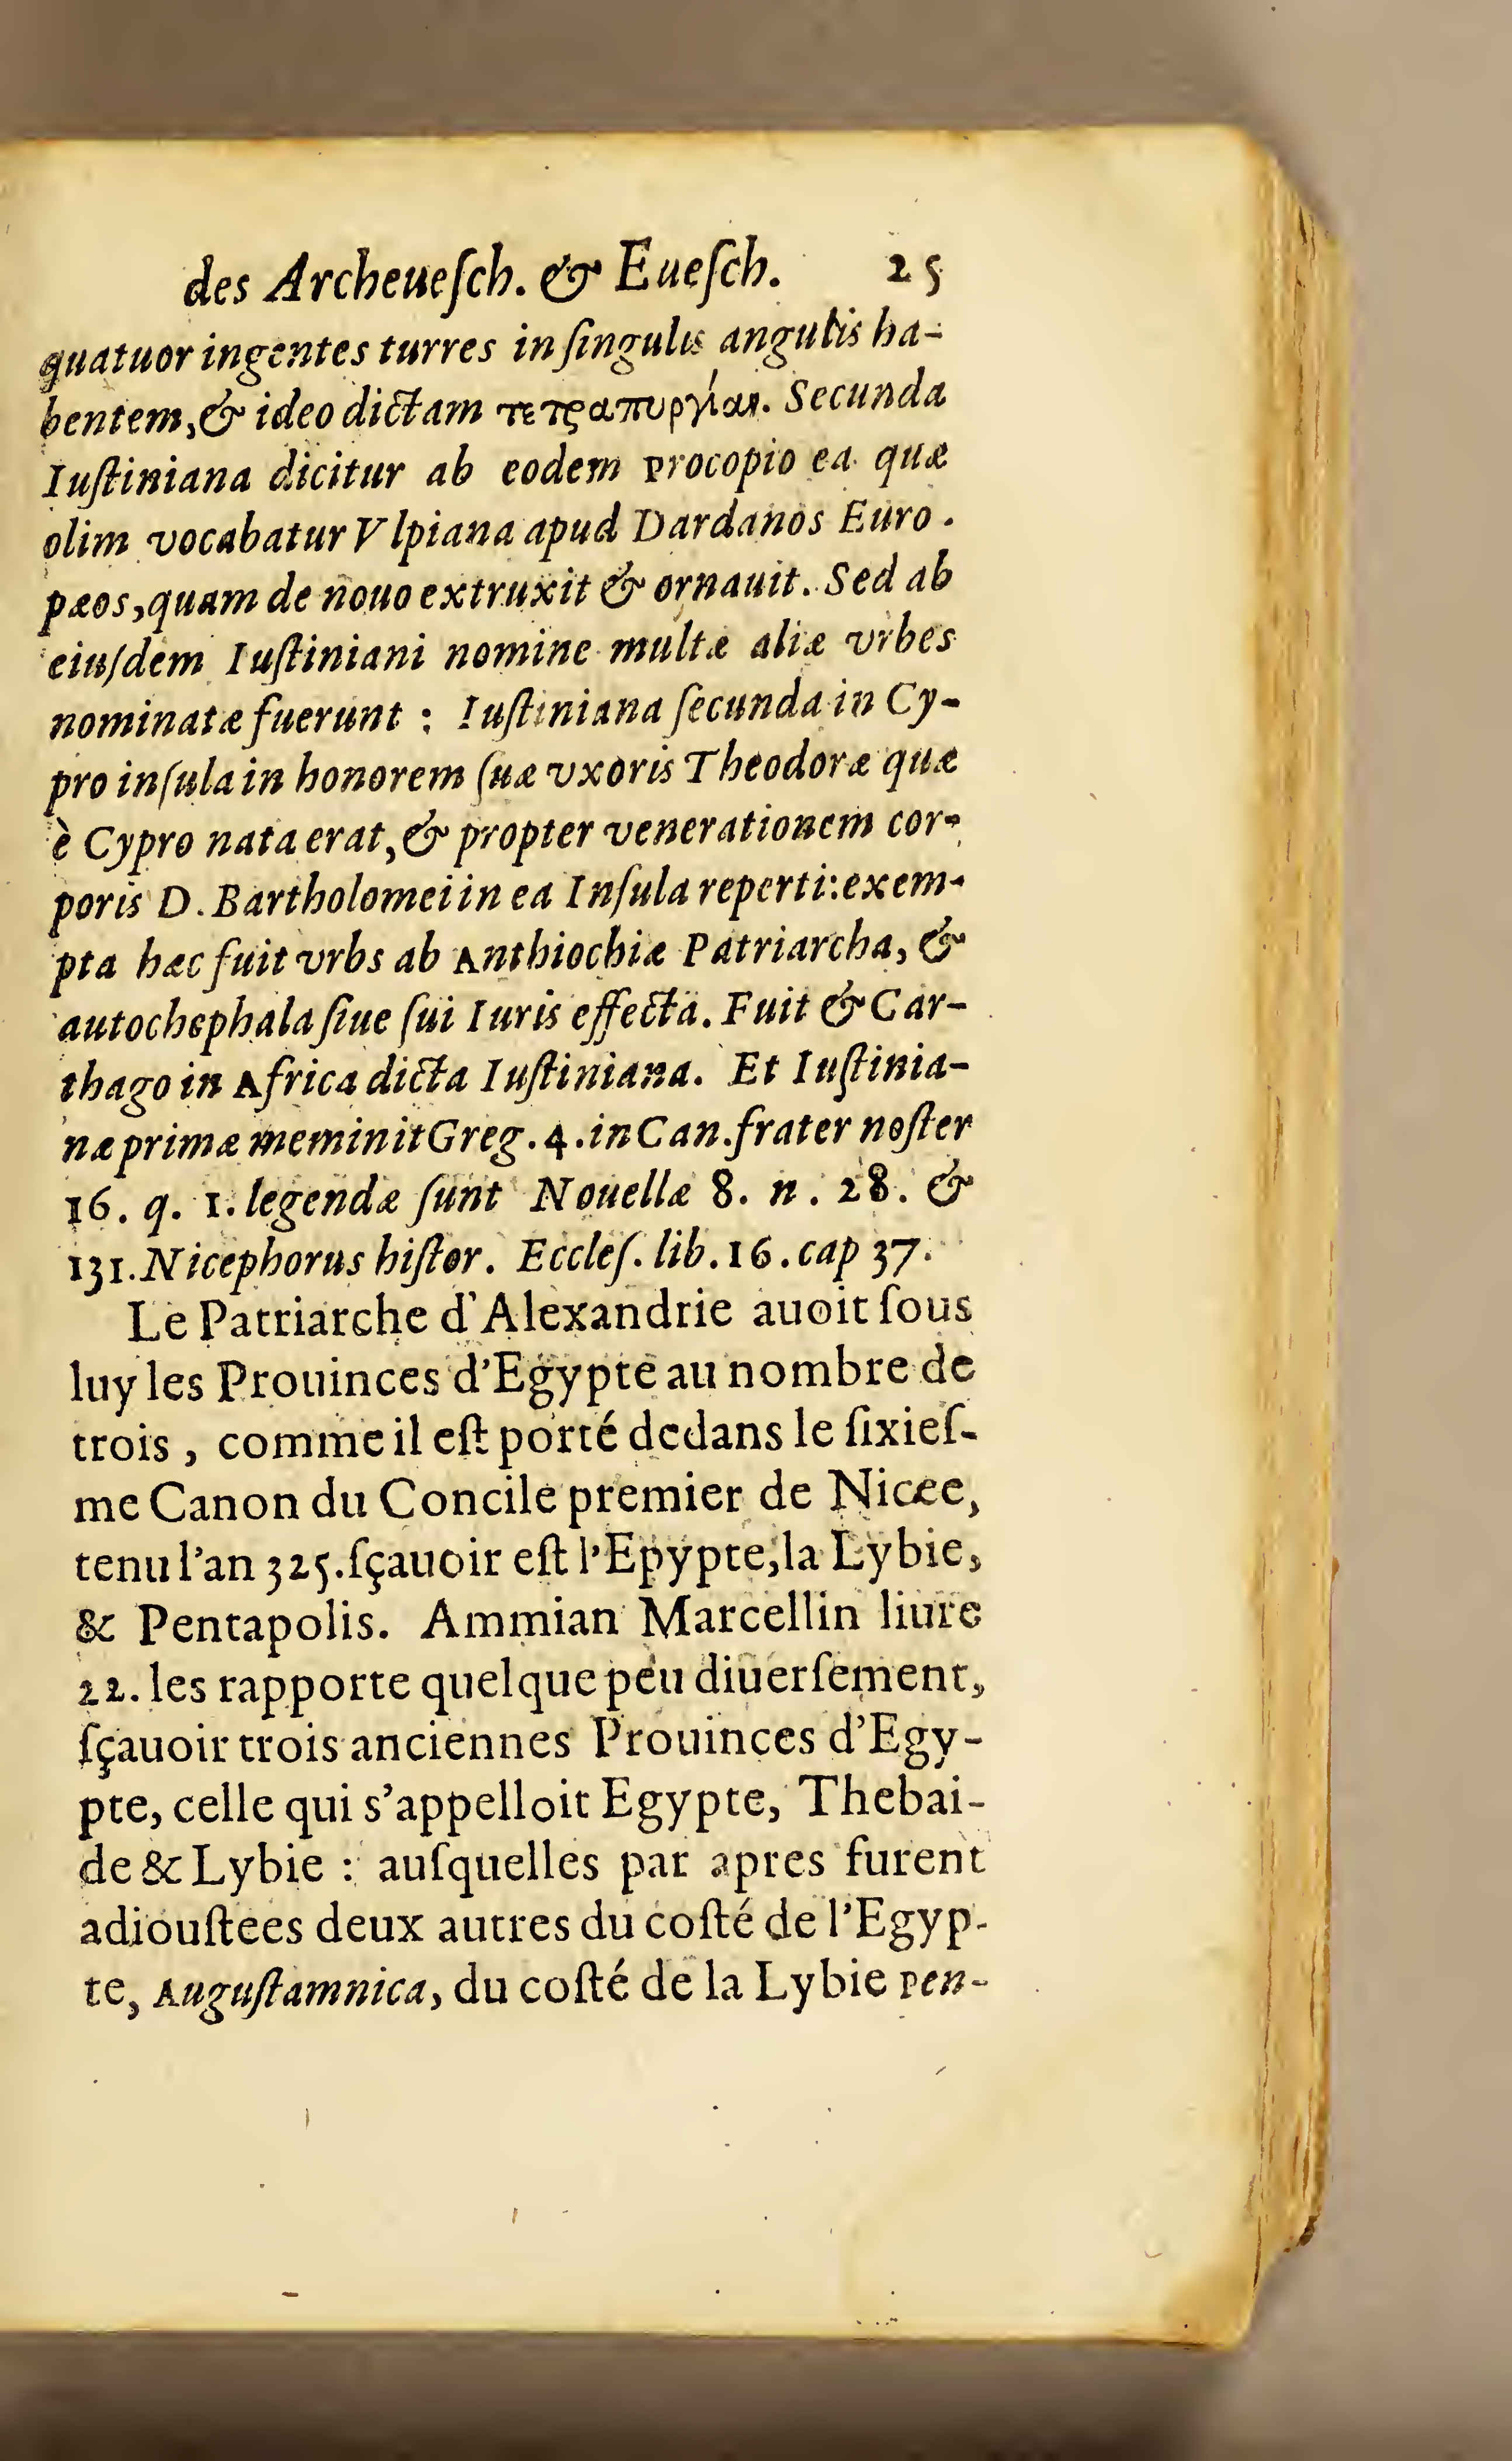 des Archeueſch. & Eueſch. 25
quatuor ingentes turres in ſingulis angulis ha-
bentem, & ideo dictam τετραπυργίαν. Secunda
Iuſtiniana dicitur ab eodem Procopio ea quæ
olim vocabatur Vlpiana apud Dardanos Euro.
pæos, quam de nouo extruxit & ornauit. Sed ab
eiuſdem Iuſtiniani nomine multæ aliæ vrbes
nominatæ fuerunt : Iuſtiniana ſecunda in Cy-
pro inſula in honorem ſuæ vxoris Theodoræ quæ
è Cypro nata erat, & propter venerationem cor-
poris D. Bartholomei in ea Inſula reperti: exem-
pta hæc fuit vrbs ab Anthiochiæ Patriarcha, &
autochephala ſiue ſui Iuris effecta. Fuit & Car-
thago in Africa dicta Iuſtiniana. Et Iuſtinia-
næ primæ meminit Greg. 4. in Can. frater noſter
16. q. 1. legendæ ſunt Nouellæ 8. n. 28. &
131. Nicephorus hiſtor. Eccleſ. lib. 16. cap 37.
Le Patriarche d'Alexandrie auoit ſous
luy les Prouinces d'Egypte au nombre de
trois, comme il eſt porté dedans le ſixieſ-
me Canon du Concile premier de Nicee,
tenu l'an 325. ſçauoir eſt l'Epypte, la Lybie,
& Pentapolis. Ammian Marcellin liure
22. les rapporte quelque peu diuerſement,
ſçauoir trois anciennes Prouinces d'Egy-
pte, celle qui s'appelloit Egypte, Thebai-
de & Lybie : auſquelles par apres furent
adiouſtees deux autres du coſté de l'Egyp-
te, Auguſtamnica, du coſté de la Lybie Pen-